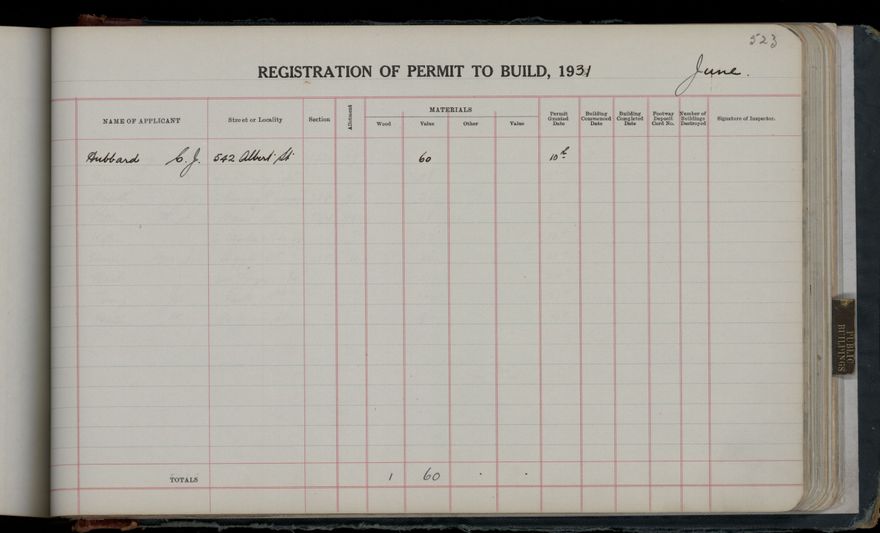 523
REGISTRATION OF PERMIT TO BUILD, 1931 June.
NAME OF APPLICANT
Street or Locality
Section
Allotment
MATERIALS
Wood
Value
Other
Value
Permit Granted Date
Building Commenced Date
Building Completed Date
Footway Deposit Card No.
Number of Buildings Destroyed
Signature of Inspector.
Hubbard C. J. 542 Albert St 60 10th
TOTALS 1 60 . .
PUBLIC
BUILDINGS